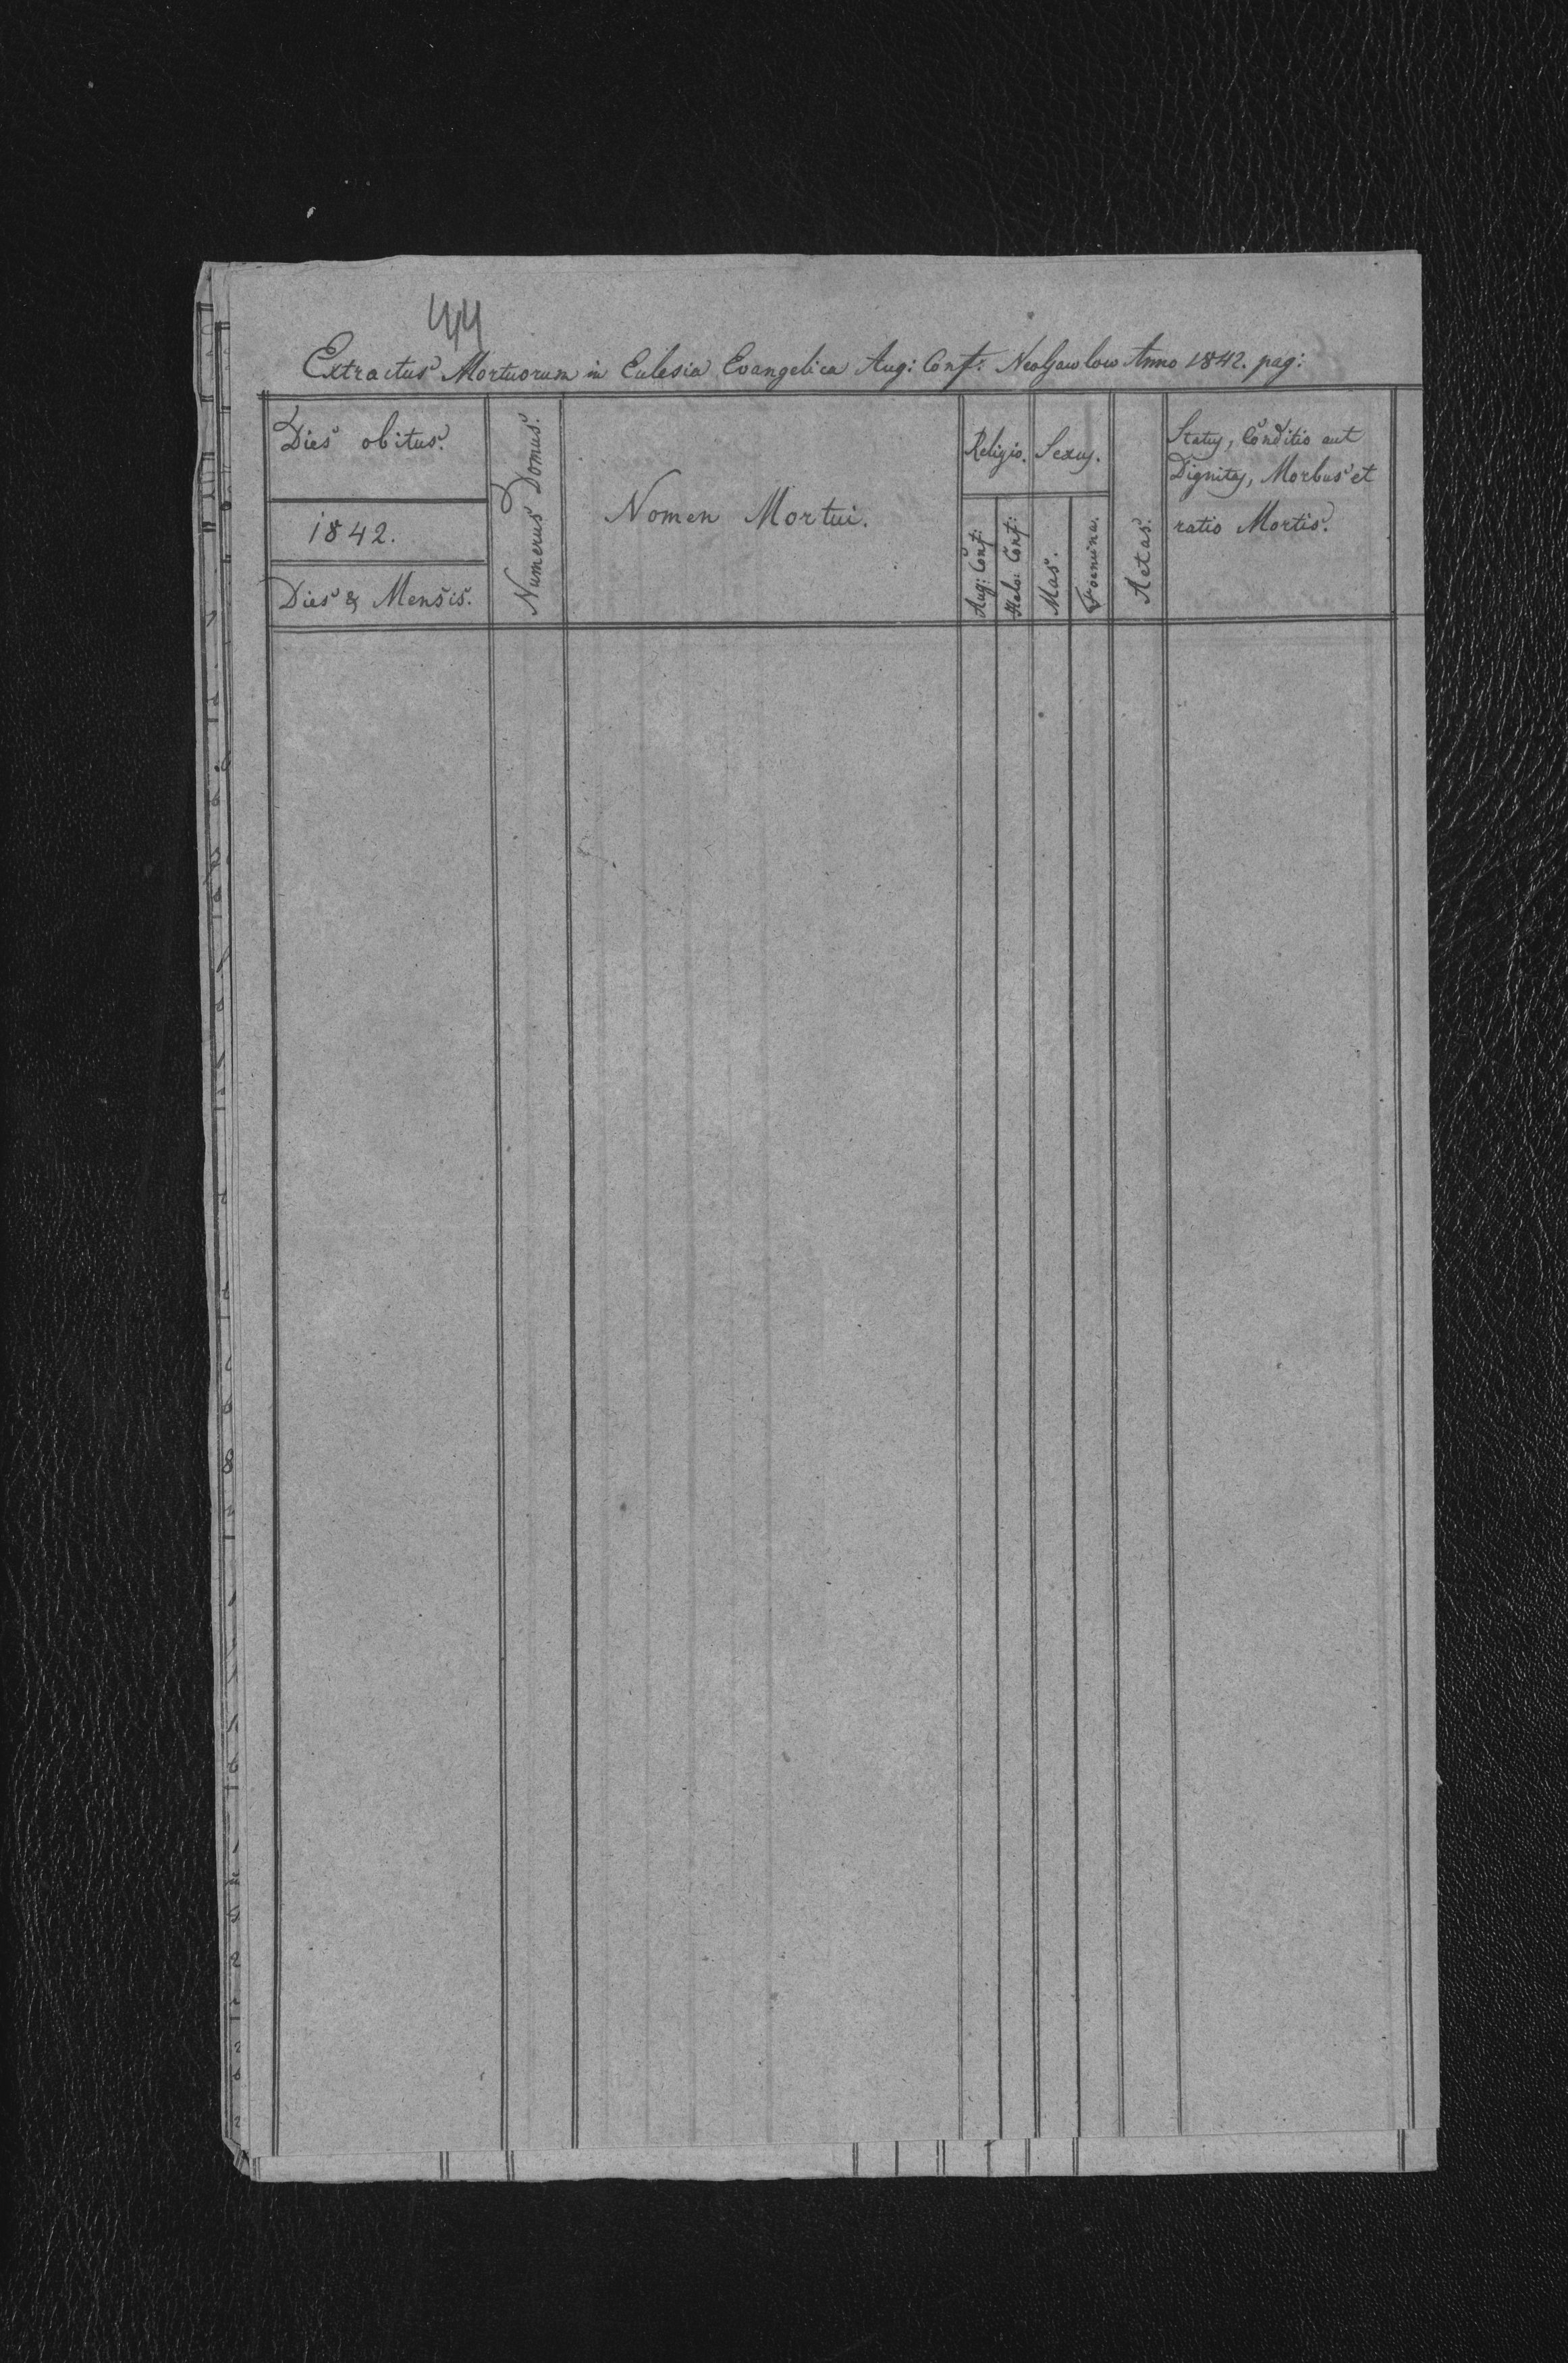 44
Extractus Mortuorum in Eclesia Evangelica Aug: Conf: Anno 1842. pag:
Dies obitus.
1842.
Dies & Mensis.
Numerus Domus.
Nomen Mortui.
Religio.
Aug: Conf:
Helv: Conf:
Sexus.
Mas.
Foemina.
Aetas.
Status, Conditio aut
Dignitas, Morbus et
ratio Mortis.